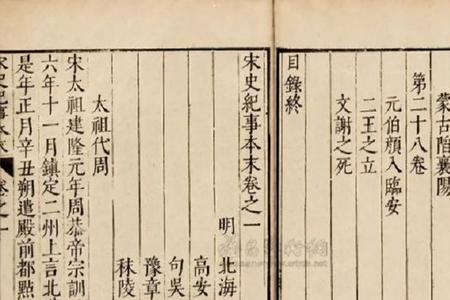 蒙古陷襄陽
第二十八卷
元伯顏入臨安
二王之立
文謝之死
目錄終
宋史紀事本末卷之一
明 北海
高安
句吳
豫章
秣陵
太祖代周
宋太祖建隆元年周恭帝宗訓
六年十一月鎮定二州上言北
是年正月辛丑朔遣殿前都點
宋史紀事本末 卷之一